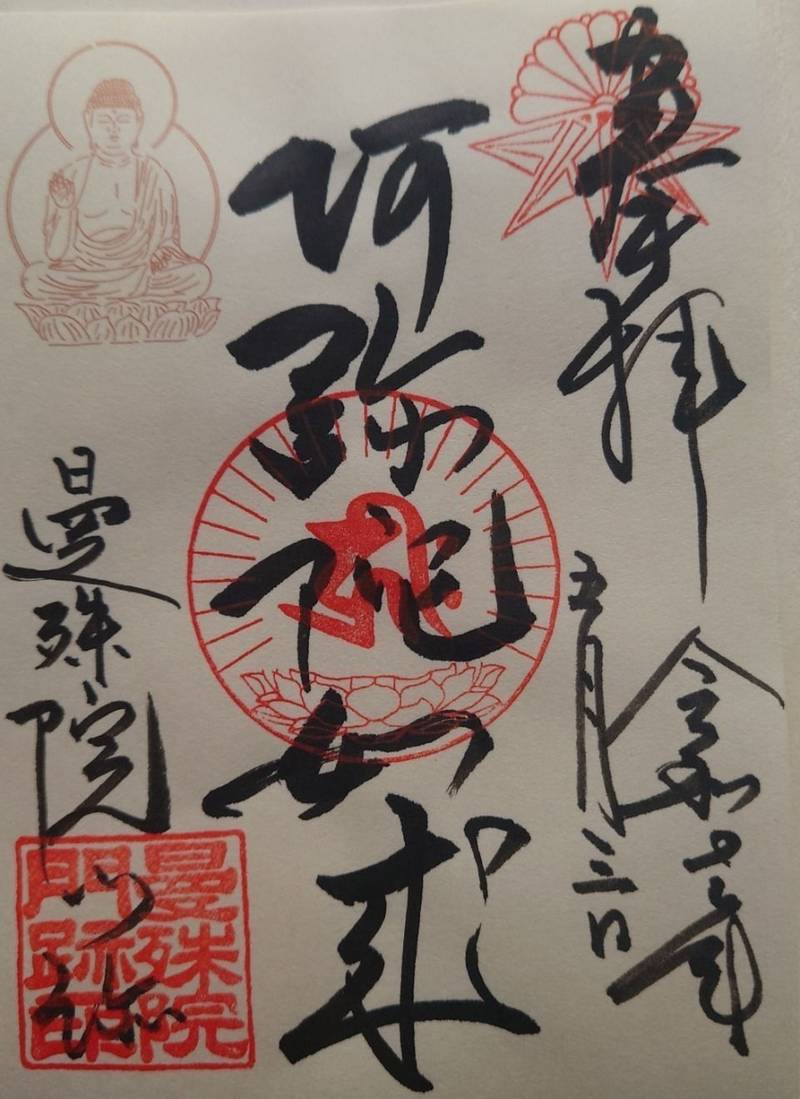 奉拝
令和七年
五月三日
阿弥陀如来
曼殊院
門跡
曼殊院
門跡印